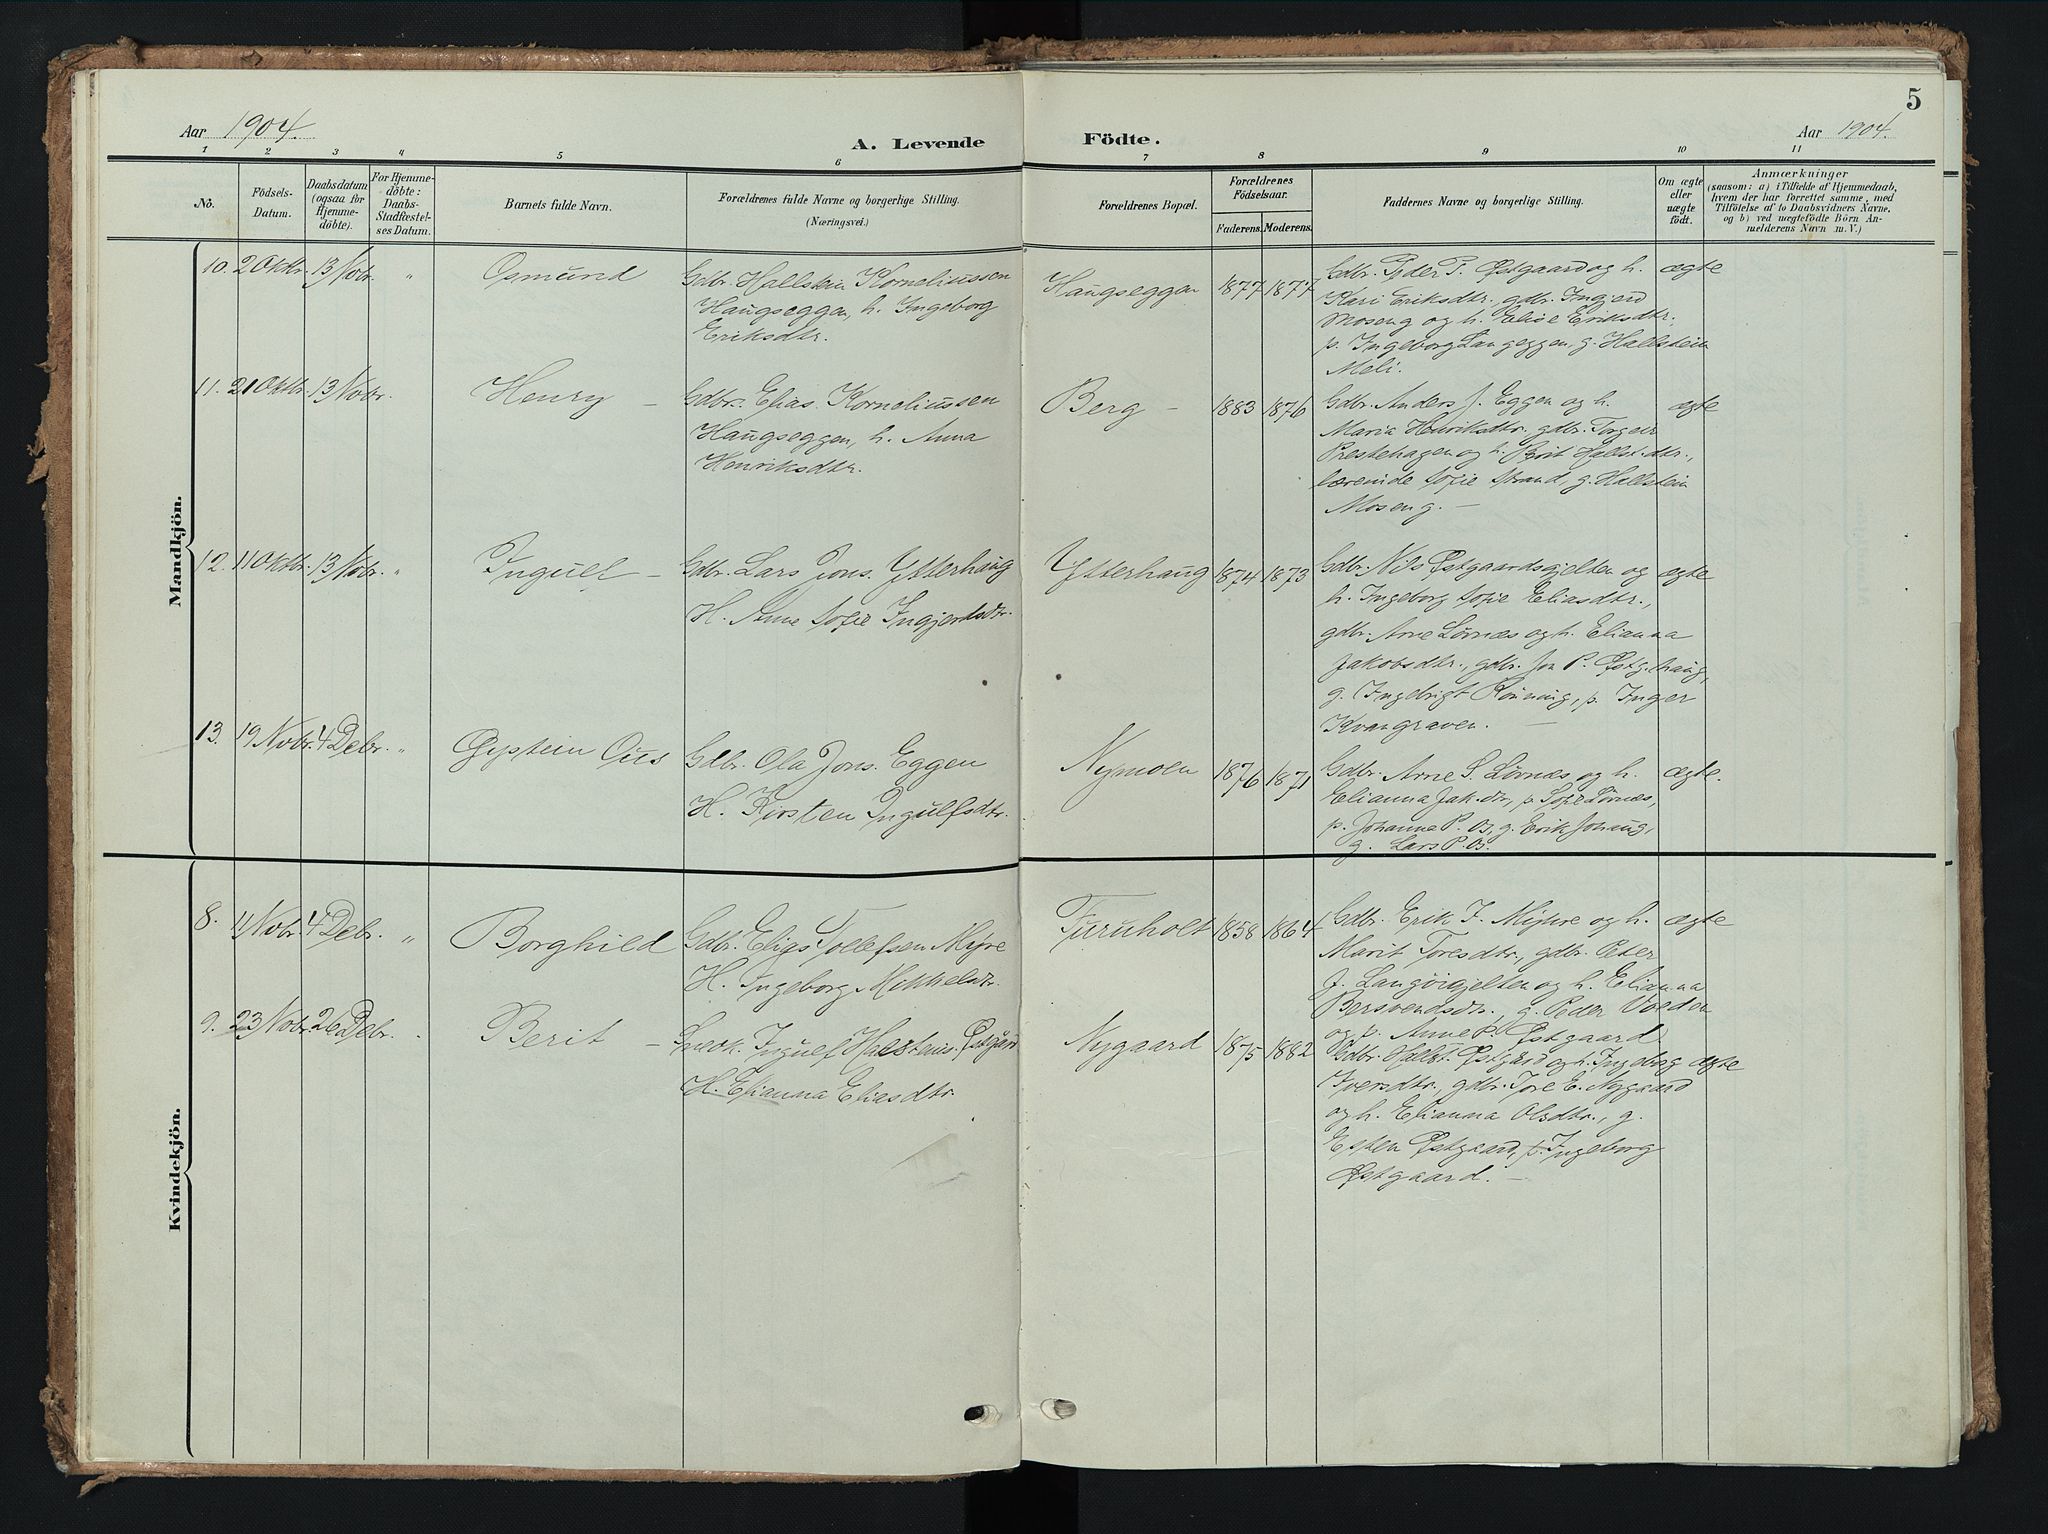 5
Aar 1904.
A. Levende
Födte.
Aar 1904.
1 2 3 4 5 6 7 8 9 10 11
No.
Födsels-
Datum.
Daabsdatum
(ogsaa for
Hjemme-
döbte).
For Hjemme-
döbte:
Daabs-
Stadfæstel-
ses Datum.
Barnets fulde Navn.
Forældrenes fulde Navne og borgerlige Stilling.
(Næringsvei.)
Forældrenes Bopæl.
Forældrenes
Födselsaar.
Faderens. Moderens.
Faddernes Navne og borgerlige Stilling.
Om ægte
eller
uægte
födt.
Anmærkninger
(saasom: a) i Tilfælde af Hjemmedaab,
hvem der har forrettet samme, med
Tilföielse af to Daabsvidners Navne,
og b) ved uægtefödte Börn An-
melderens Navn m. V.)
Mandkjön.
10. 2 Oktbr. 13 Novbr. " Osmund
Gdbr. Hallstein Korneliussen
Haugseggen, h. Ingeborg
Eriksdtr.
Haugseggen 1877 1877
Gdbr. Peder P. Østgaard og h. ægte
Kari Eriksdtr., gdbr. Ingjerd
Moseng og h. Elise Eriksdtr.,
p. Ingeborg Langeggen, g. Hallstein
Meli.
11. 21 Oktbr. 13 Novbr. Henry –
Gdbr. Elias Korneliussen
Haugseggen, h. Anna
Henriksdtr.
Berg – 1883 1876
Gdbr. Anders J. Eggen og h. ægte
Maria Henriksdtr. gdbr. Torgeir
Prestehagen og h. Brit Hallst.dtr.,
lærerinde Sofie Strand, g. Hallstein
Moseng. –
12. 11 Oktbr. 13 Novbr. " Ingulf –
Gdbr. Lars Jons. Ytterhaug
H. Anne Sofie Ingjerdsdtr.
Ytterhaug 1874 1873
Gdbr. Nils Østgaardsgjelten og ægte
h. Ingeborg Sofie Eliasdtr.,
gdbr. Arne Lørnæs og h. Elianna
Jakobsdtr., gdbr. Jon P. Østg.haug,
g. Ingebrigt Rønning, p. Inger
Kvangraven. –
13. 19 Novbr. 4 Debr. " Øystein Otis
Gdbr. Ola Jons. Eggen
H. Kirsten Ingulfsdtr.
Nymoen 1876 1871
Gdbr. Arne S. Lørnæs og h. ægte.
Elianna Jak.dtr., p. Sofie Lørnæs,
p. Johanne P. Os, g. Erik Johaug,
g. Lars P. Os.
Kvindekjön.
8. 11 Novbr. 4 Debr. " Borghild
Gdbr. Elias Tollefsen Myre
H. Ingeborg Mikkelsdtr.
Furuholt 1858 1864
Gdbr. Erik J. Myhre og h. ægte
Marit Toresdtr., gdbr. Peter
J. Langøigjelten og h. Elianna
Bersvendsdtr., g. Peder Volden
og p. Anne P. Østgaard
9. 23 Novbr. 26 Debr. Berit –
Snedk. Ingulf Halstens. Østgård
H. Elianna Eliasdtr.
Nygaard 1875 1882
Gdbr. Hallst. Østgård og h. Ingeborg ægte
Iversdtr., gdbr. Tore E. Nygaard
og h. Elianna Olsdtr., g.
Esten Østgaard, p. Ingeborg
Østgaard. –